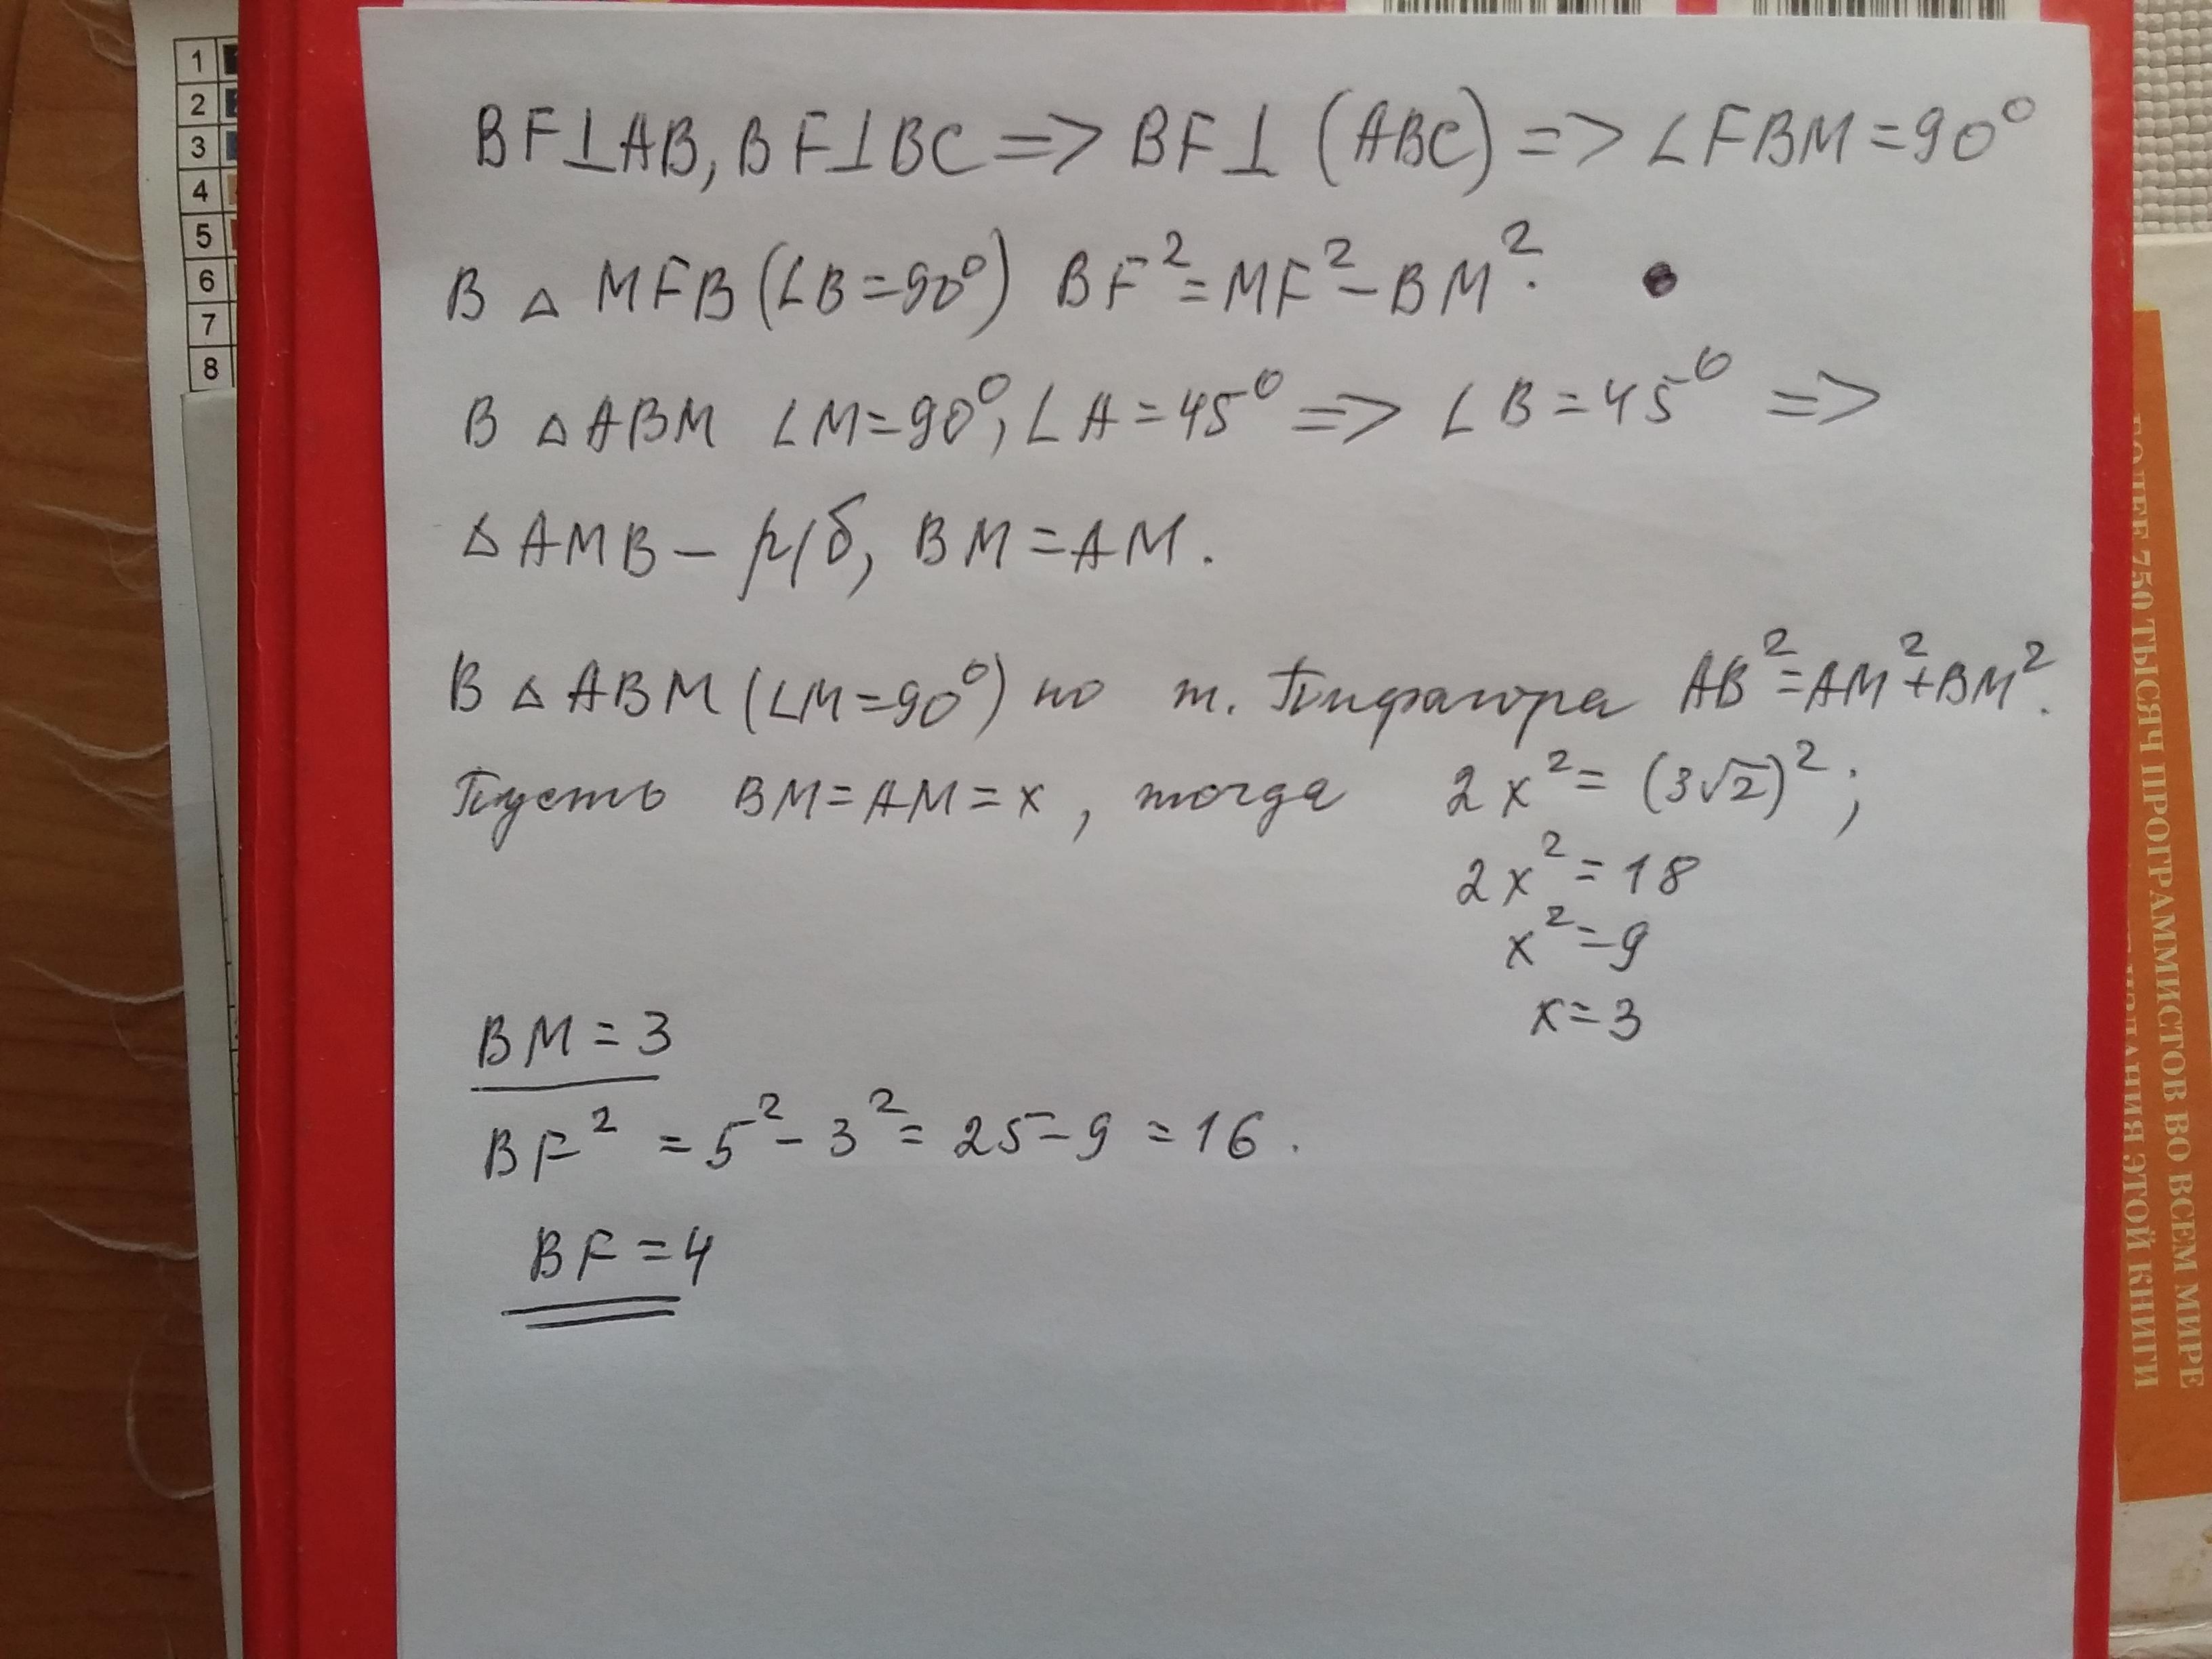 1
2
3
4
5
6
7
8
BF⊥AB, BF⊥BC => BF⊥ (ABC) => ∠FBM = 90°
В △ MFB (∠B = 90°) BF² = MF² – BM².
В △ABM ∠M = 90°, ∠A = 45° => ∠B = 45° =>
△AMB – р/б, BM = AM.
В △ ABM (∠M = 90°) по т. Пифагора AB² = AM² + BM².
Пусть BM = AM = x, тогда 2x² = (3√2)²;
2x² = 18
x² = 9
x = 3
BM = 3
BF² = 5² – 3² = 25 – 9 = 16.
BF = 4
БОЛЕЕ 750 ТЫСЯЧ ПРОГРАММИСТОВ ВО ВСЕМ МИРЕ
ЭТОЙ КНИГИ